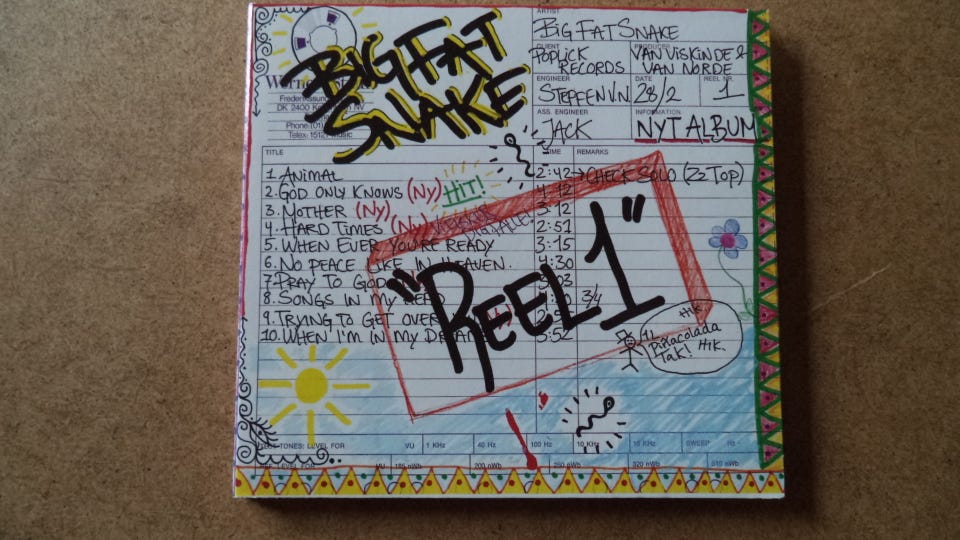 BIG FAT SNAKE
ARTIST
BIG FAT SNAKE
CLIENT
POPLICK RECORDS
PRODUCER
VAN VISKINDE & VAN NORDE
ENGINEER
STEFFEN V.N.
DATE
28/2
REEL NR.
1
ASS. ENGINEER
JACK
INFORMATION
NYT ALBUM
DK 2400
Phone: (01)
Telex: 1512
TITLE
TIME
REMARKS
1. ANIMAL 2:42 → CHECK SOLO (ZZ TOP)
2. GOD ONLY KNOWS (NY) HIT! 4:12
3. MOTHER (NY) 3:12
4. HARD TIMES (NY) 2:51
5. WHEN EVER YOU'RE READY 3:15
6. NO PEACE LIKE IN HEAVEN. 4:30
7. PRAY TO GOD
8. SONGS IN MY HEAD 3/4
9. TRYING TO GET OVER
10. WHEN I'M IN MY DREAMS 3:52
"REEL 1"
HIK
1 Pinacolada
TAK! HIK.
TONES: LEVEL FOR VU 1 KHz 40 Hz 100 Hz 10 KHz 16 KHz SWEEP Hz
LEVEL FOR VU 185 nWb 200 nWb 250 nWb 320 nWb 510 nWb